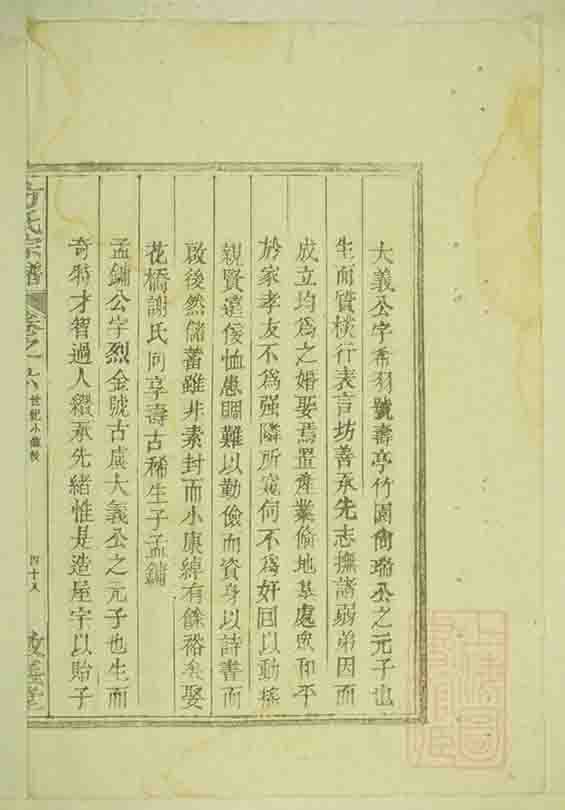 大義公字希羽號壽亭竹園衡瑞公之元子也
生而質樸行表言坊善承先志撫諸弱弟因而
成立均為之婚娶焉置產業脩地基處眾和平
於家孝友不為强隣所窺何不為奸回以動搖
親賢遠佞恤患賙難以勤儉而資身以詩書而
啟後然儲蓄雖非素封而小康綽有餘裕矣娶
花橋謝氏同享壽古稀生子孟鏽
孟鏽公字烈金號古虞大義公之元子也生而
奇特才智過人纘承先緒惟是造屋宇以貽子
方氏宗譜 卷之六 世紀小傳 四十八 堂